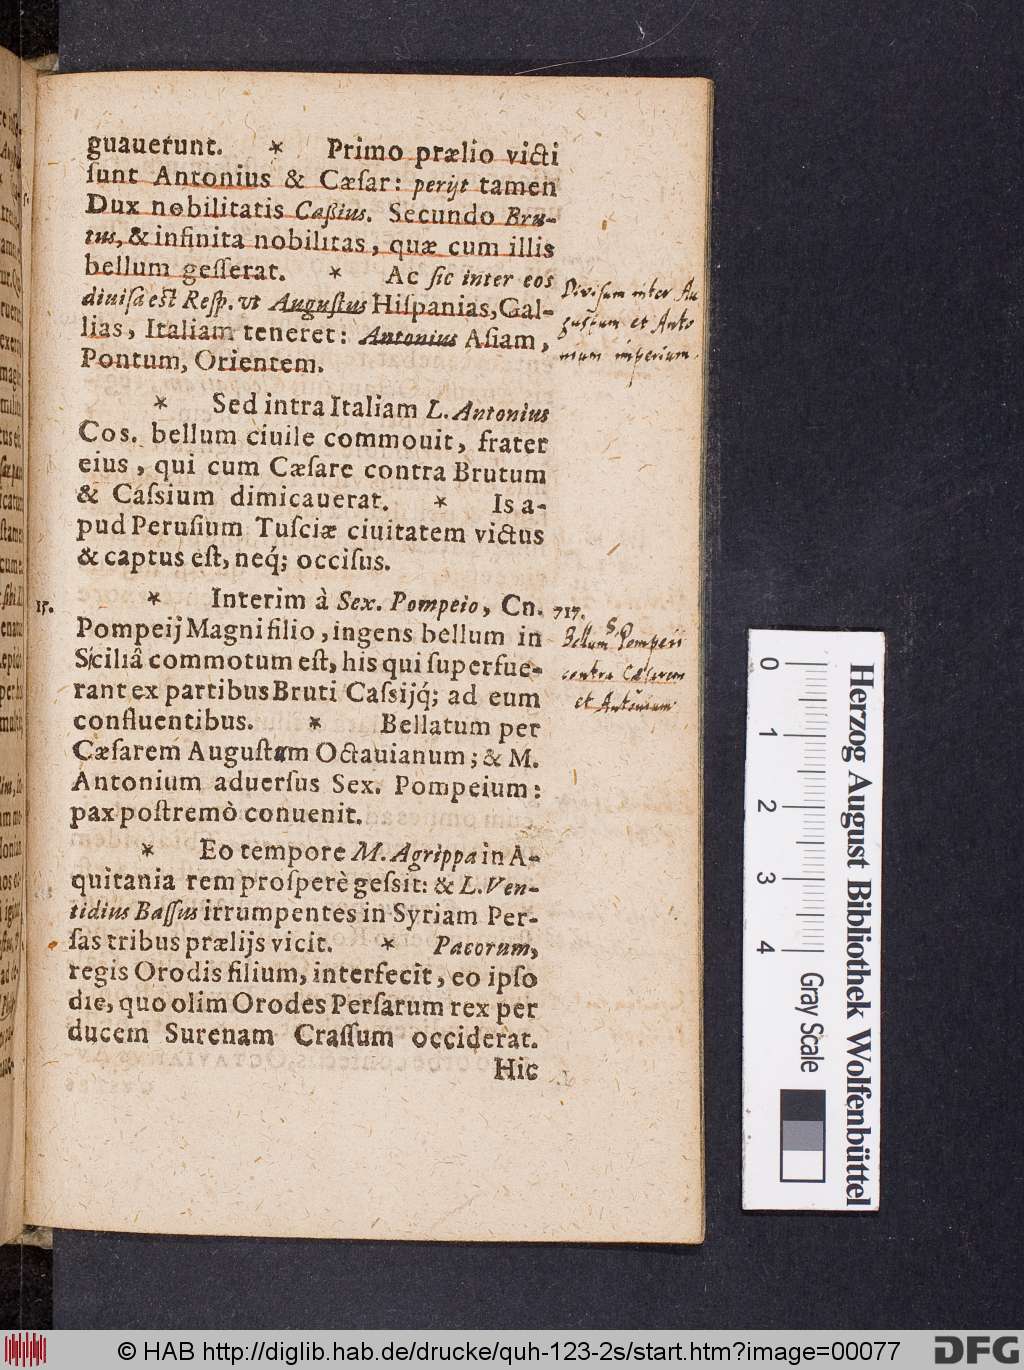 guauerunt. * Primo prælio victi
ſunt Antonius & Cæſar: perijt tamen
Dux nobilitatis Caßius. Secundo Bru-
tus, & infinita nobilitas, quæ cum illis
bellum geſſerat. * Ac ſic inter eos
diuiſa eſt Reſp. vt Auguſtus Hiſpanias, Gal-
lias, Italiam teneret: Antonius Aſiam,
Pontum, Orientem.
Diviſum inter Au
guſtum et Anto
nium imperium.
* Sed intra Italiam L. Antonius
Cos. bellum ciuile commouit, frater
eius, qui cum Cæſare contra Brutum
& Caſsium dimicauerat. * Is a-
pud Peruſium Tuſciæ ciuitatem victus
& captus eſt, neq́; occiſus.
15.
* Interim à Sex. Pompeio, Cn.
Pompeij Magni filio, ingens bellum in
Siciliâ commotum eſt, his qui ſuperfue-
rant ex partibus Bruti Caſsijq́; ad eum
confluentibus. * Bellatum per
Cæſarem Auguſtum Octauianum; & M.
Antonium aduerſus Sex. Pompeium:
pax poſtremò conuenit.
717.
Bellum S. Pompeii
contra Cæſarem
et Antonium
* Eo tempore M. Agrippa in A-
quitania rem proſperè geſsit: & L. Ven-
tidius Baſſus irrumpentes in Syriam Per-
ſas tribus prælijs vicit. * Pacorum,
regis Orodis filium, interfecit, eo ipſo
die, quo olim Orodes Perſarum rex per
ducem Surenam Craſſum occiderat.
Hic
0 1 2 3 4
Gray Scale
Herzog August Bibliothek Wolfenbüttel
© HAB http://diglib.hab.de/drucke/quh-123-2s/start.htm?image=00077
DFG